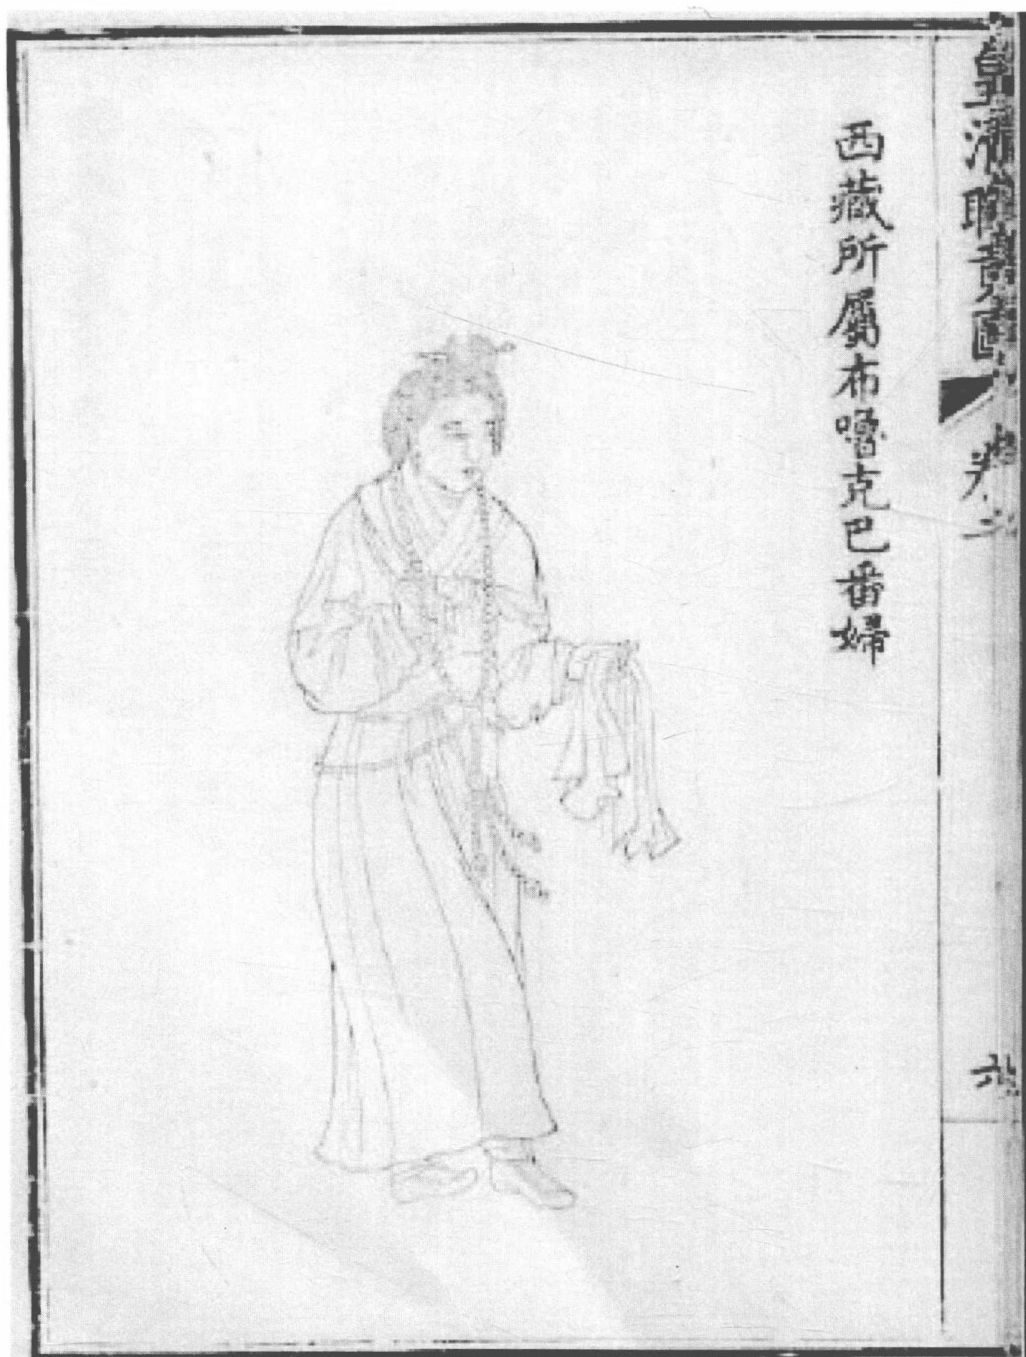 皇清職貢圖
卷二
西藏所屬布嚕克巴番婦